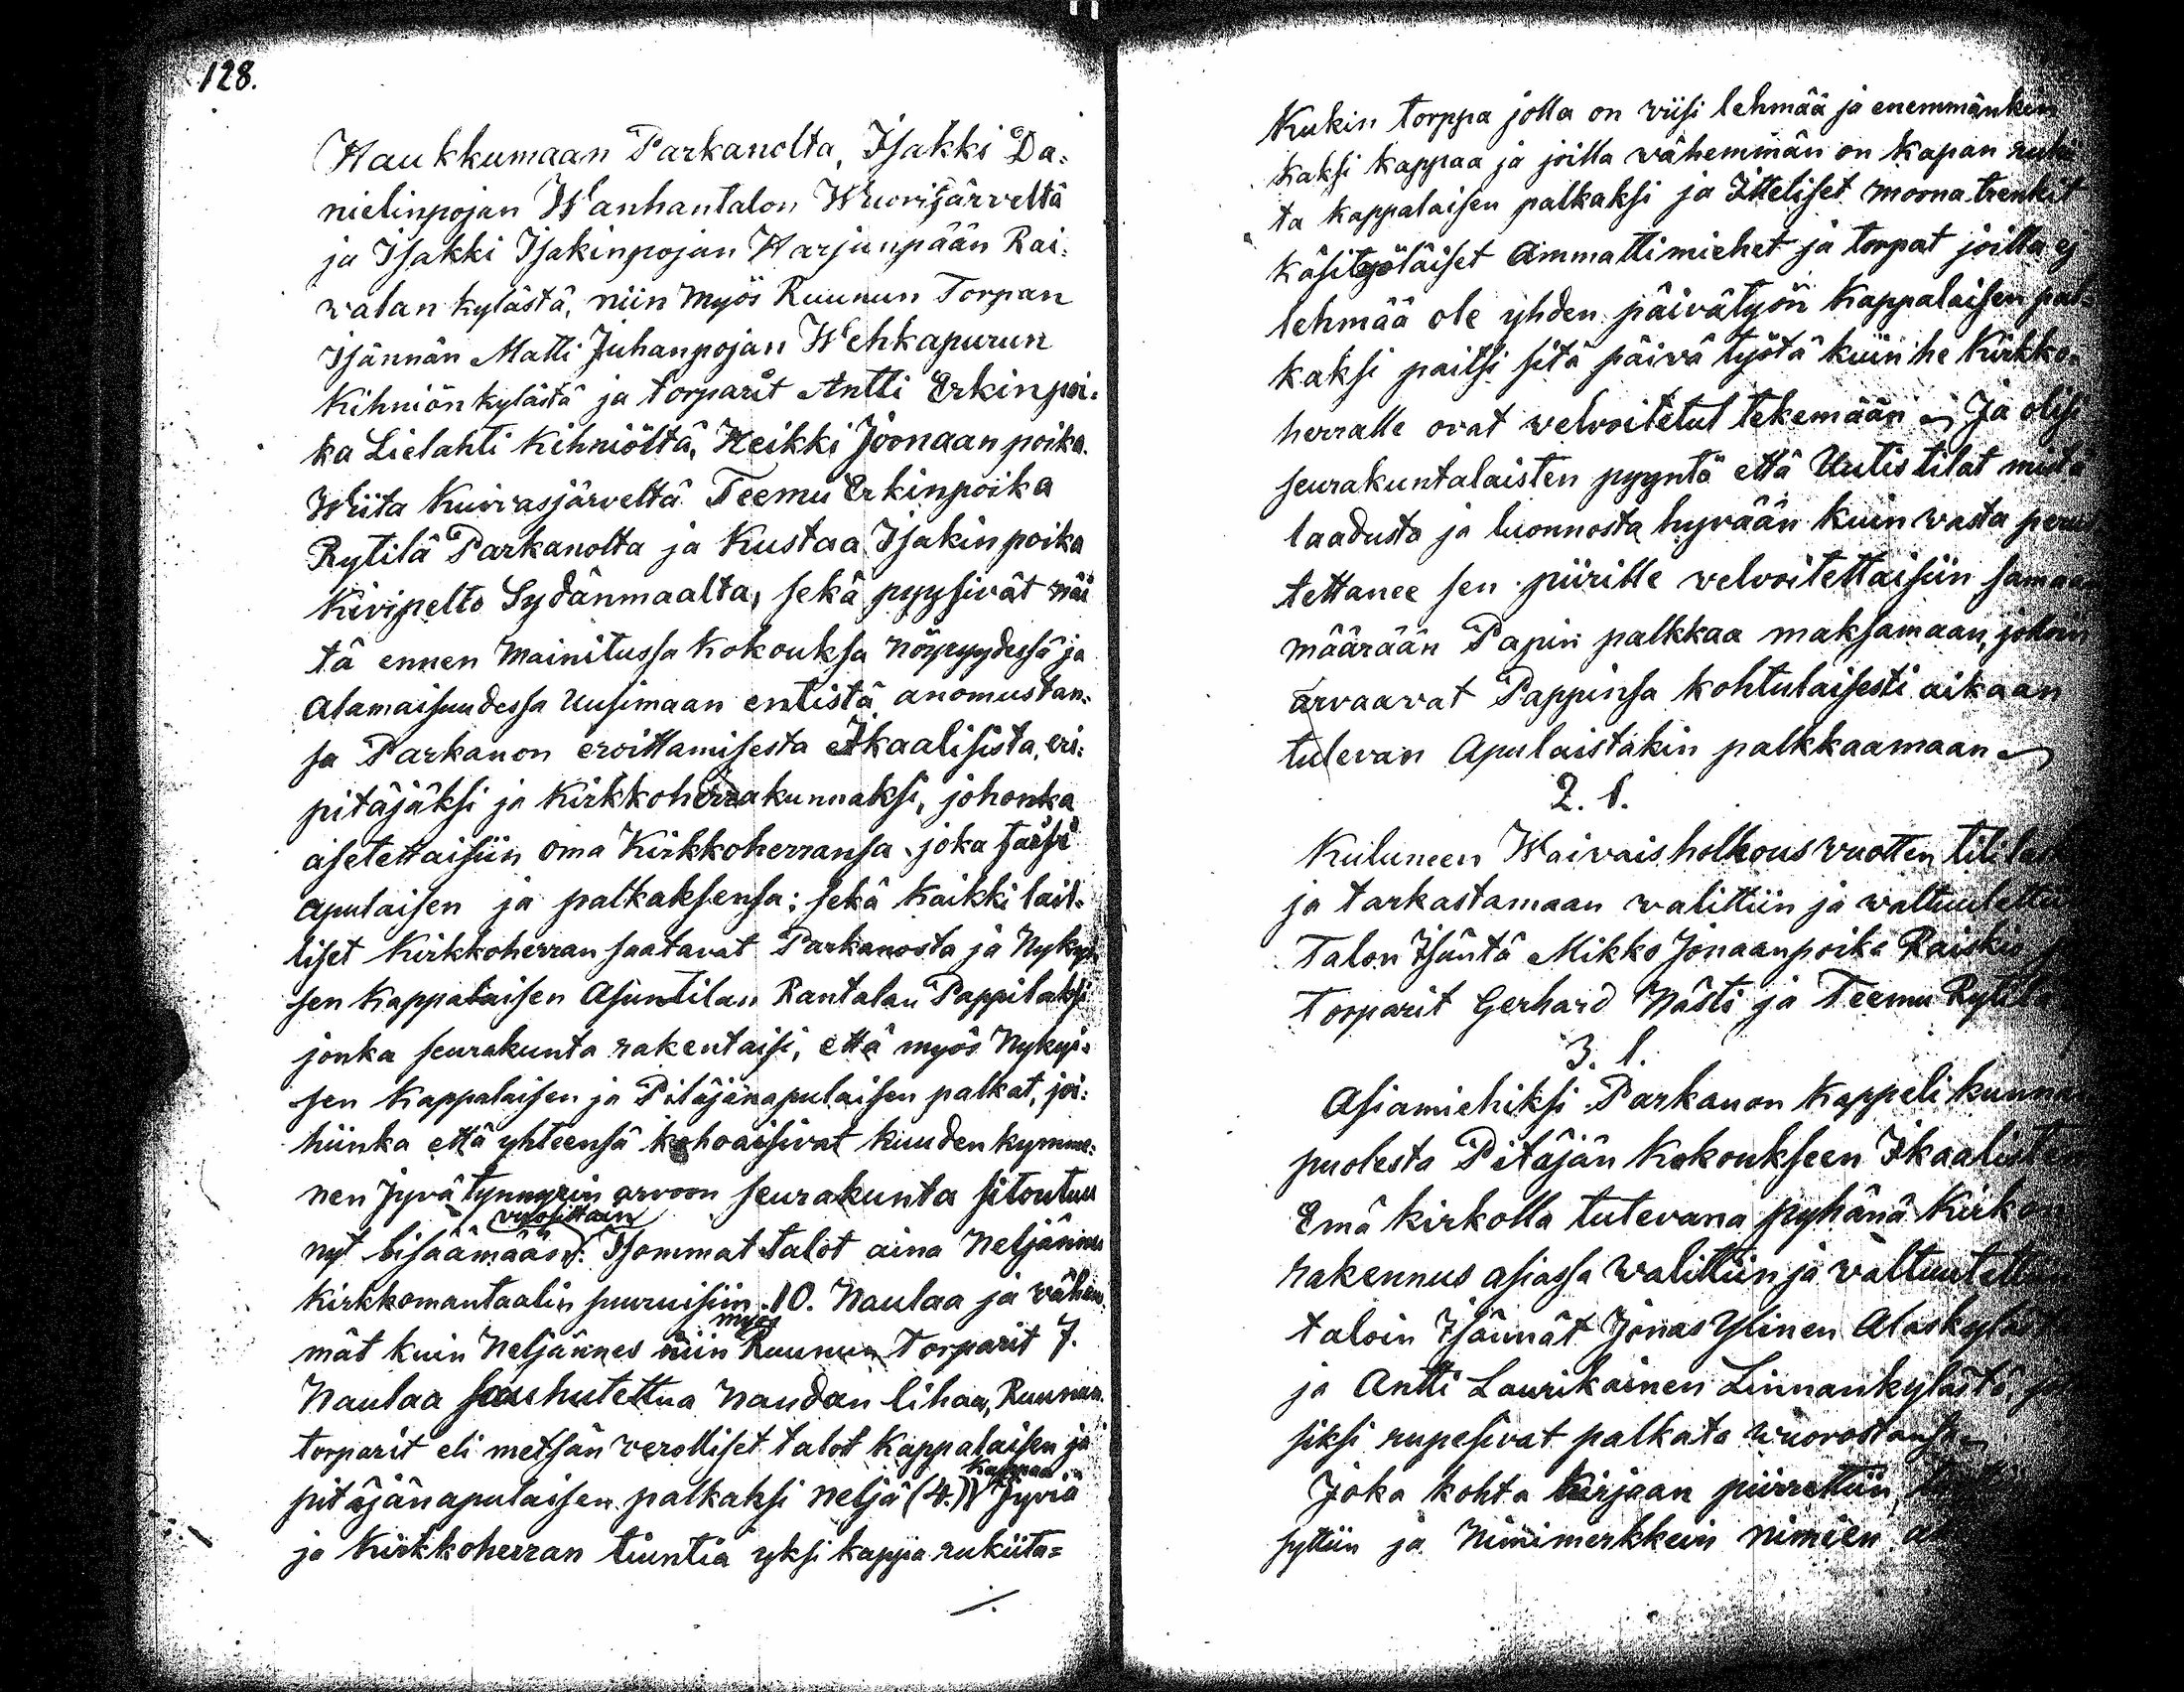 128.
Haukkumaan Parkanolta, Isakki Da=
nielinpojan Wanhantalon Wuorijärveltä
ja Isakki Isakinpojan Harjunpään Rai=
walan kylästä, niin Myös Ruunun Torpan
Isännän Matti Juhanpojan Wehkapurun
Kihniön kylästä ja torparit Antti Erkinpoi=
ka Lielahti Kihniöltä, Heikki Joonaan poika
Wiita Kuivasjärveltä Teemu Erkinpoika
Rytilä Parkanolta ja Kustaa Isakin poika
Kivipelto Sydänmaalta, sekä pyysivät näi
tä ennen Mainitussa Kokouksa nöyryydessä ja
Alamaisuudessa Uusimaan entistä anomustan=
sa Parkanon eroittamisesta Ikaalisista, eri=
pitäjäksi ja Kirkkoherrakunnaksi, johonka
asetettaisiin oma Kirkkoherransa joka saisi
apulaisen ja palkaksensa: sekä Kaikki lail=
liset Kirkkoherran saatavat Parkanosta ja Nykyi
sen Kappalaisen Asuntilan Rantalan Pappilaksi
jonka seurakunta rakentaisi, että myös Nykyi=
sen Kappalaisen ja Pitäjänapulaisen palkat, joi=
hiinka että yhteensä kohoaisivat kuuden kymme=
nen Jyvä tynnyrin arvoon seurakunta sitoutuu
vuosittain
nyt lisäämään: Isommat talot aina Neljännes
Kirkkomantaalin suuruisiin 10. Naulaa ja vähem
myös
mät kuin Neljännes niin Ruunun Torparit 7.
Naulaa sauhutettua Naudan lihaa, Ruunun
torparit eli metsän verolliset talot Kappalaisen ja
Kappaa
pitäjänapulaisen palkaksi neljä (4.) Jyviä
ja Kirkkoherran tiuntia yksi kappa rukiita=
Kukin torppa jolla on viisi lehmää ja enemmänkin
kaksi kappaa ja joilla vähemmän on Kapan
ta Kappalaisen palkaksi ja Itteliset moona trenkit
Käsityöläiset Ammattimiehet ja torpat joilla ej
lehmää ole yhden päivätyön Kappalaisen pal=
kaksi paitsi sitä päivä työtä kuin he Kirkko=
herralle ovat velvoitetut tekemään Ja olisi
seurakuntalaisten pyyntö että Uutistilat mistä
laadusta ja luonnosta hyvään kuin vasta perus
tettanee sen piirille velvoitettaisiin samaan
määrään Papin palkkaa maksamaan, johon
arvaavat Pappinsa kohtulaisesti aikaan
tulevan Apulaistakin palkkaamaan
2. §.
Kuluneen Waivaisholhous vuotten
ja tarkastamaan walittiin ja waltuutettiin
Talon Isäntä Mikko Jonaanpoika Raiskio
Torparit Gerhard Nästi ja Teemu Rytilä
3. §.
Asiamiehiksi Parkanon Kappeli kunnan
puolesta Pitäjän Kokoukseen Ikaalisten
Emä kirkolla tulevana pyhänä Kirkon
rakennus asiassa walittiin ja valtuutettiin
taloin Isännät Jonas Ylinen Alaskylästä
ja Antti Laurikainen Linnankylästä
siksi rupesivat palkata wuorostansa
Joka kohta kirjaan piirrettiin
syttiin ja Nimimerkkein nimien